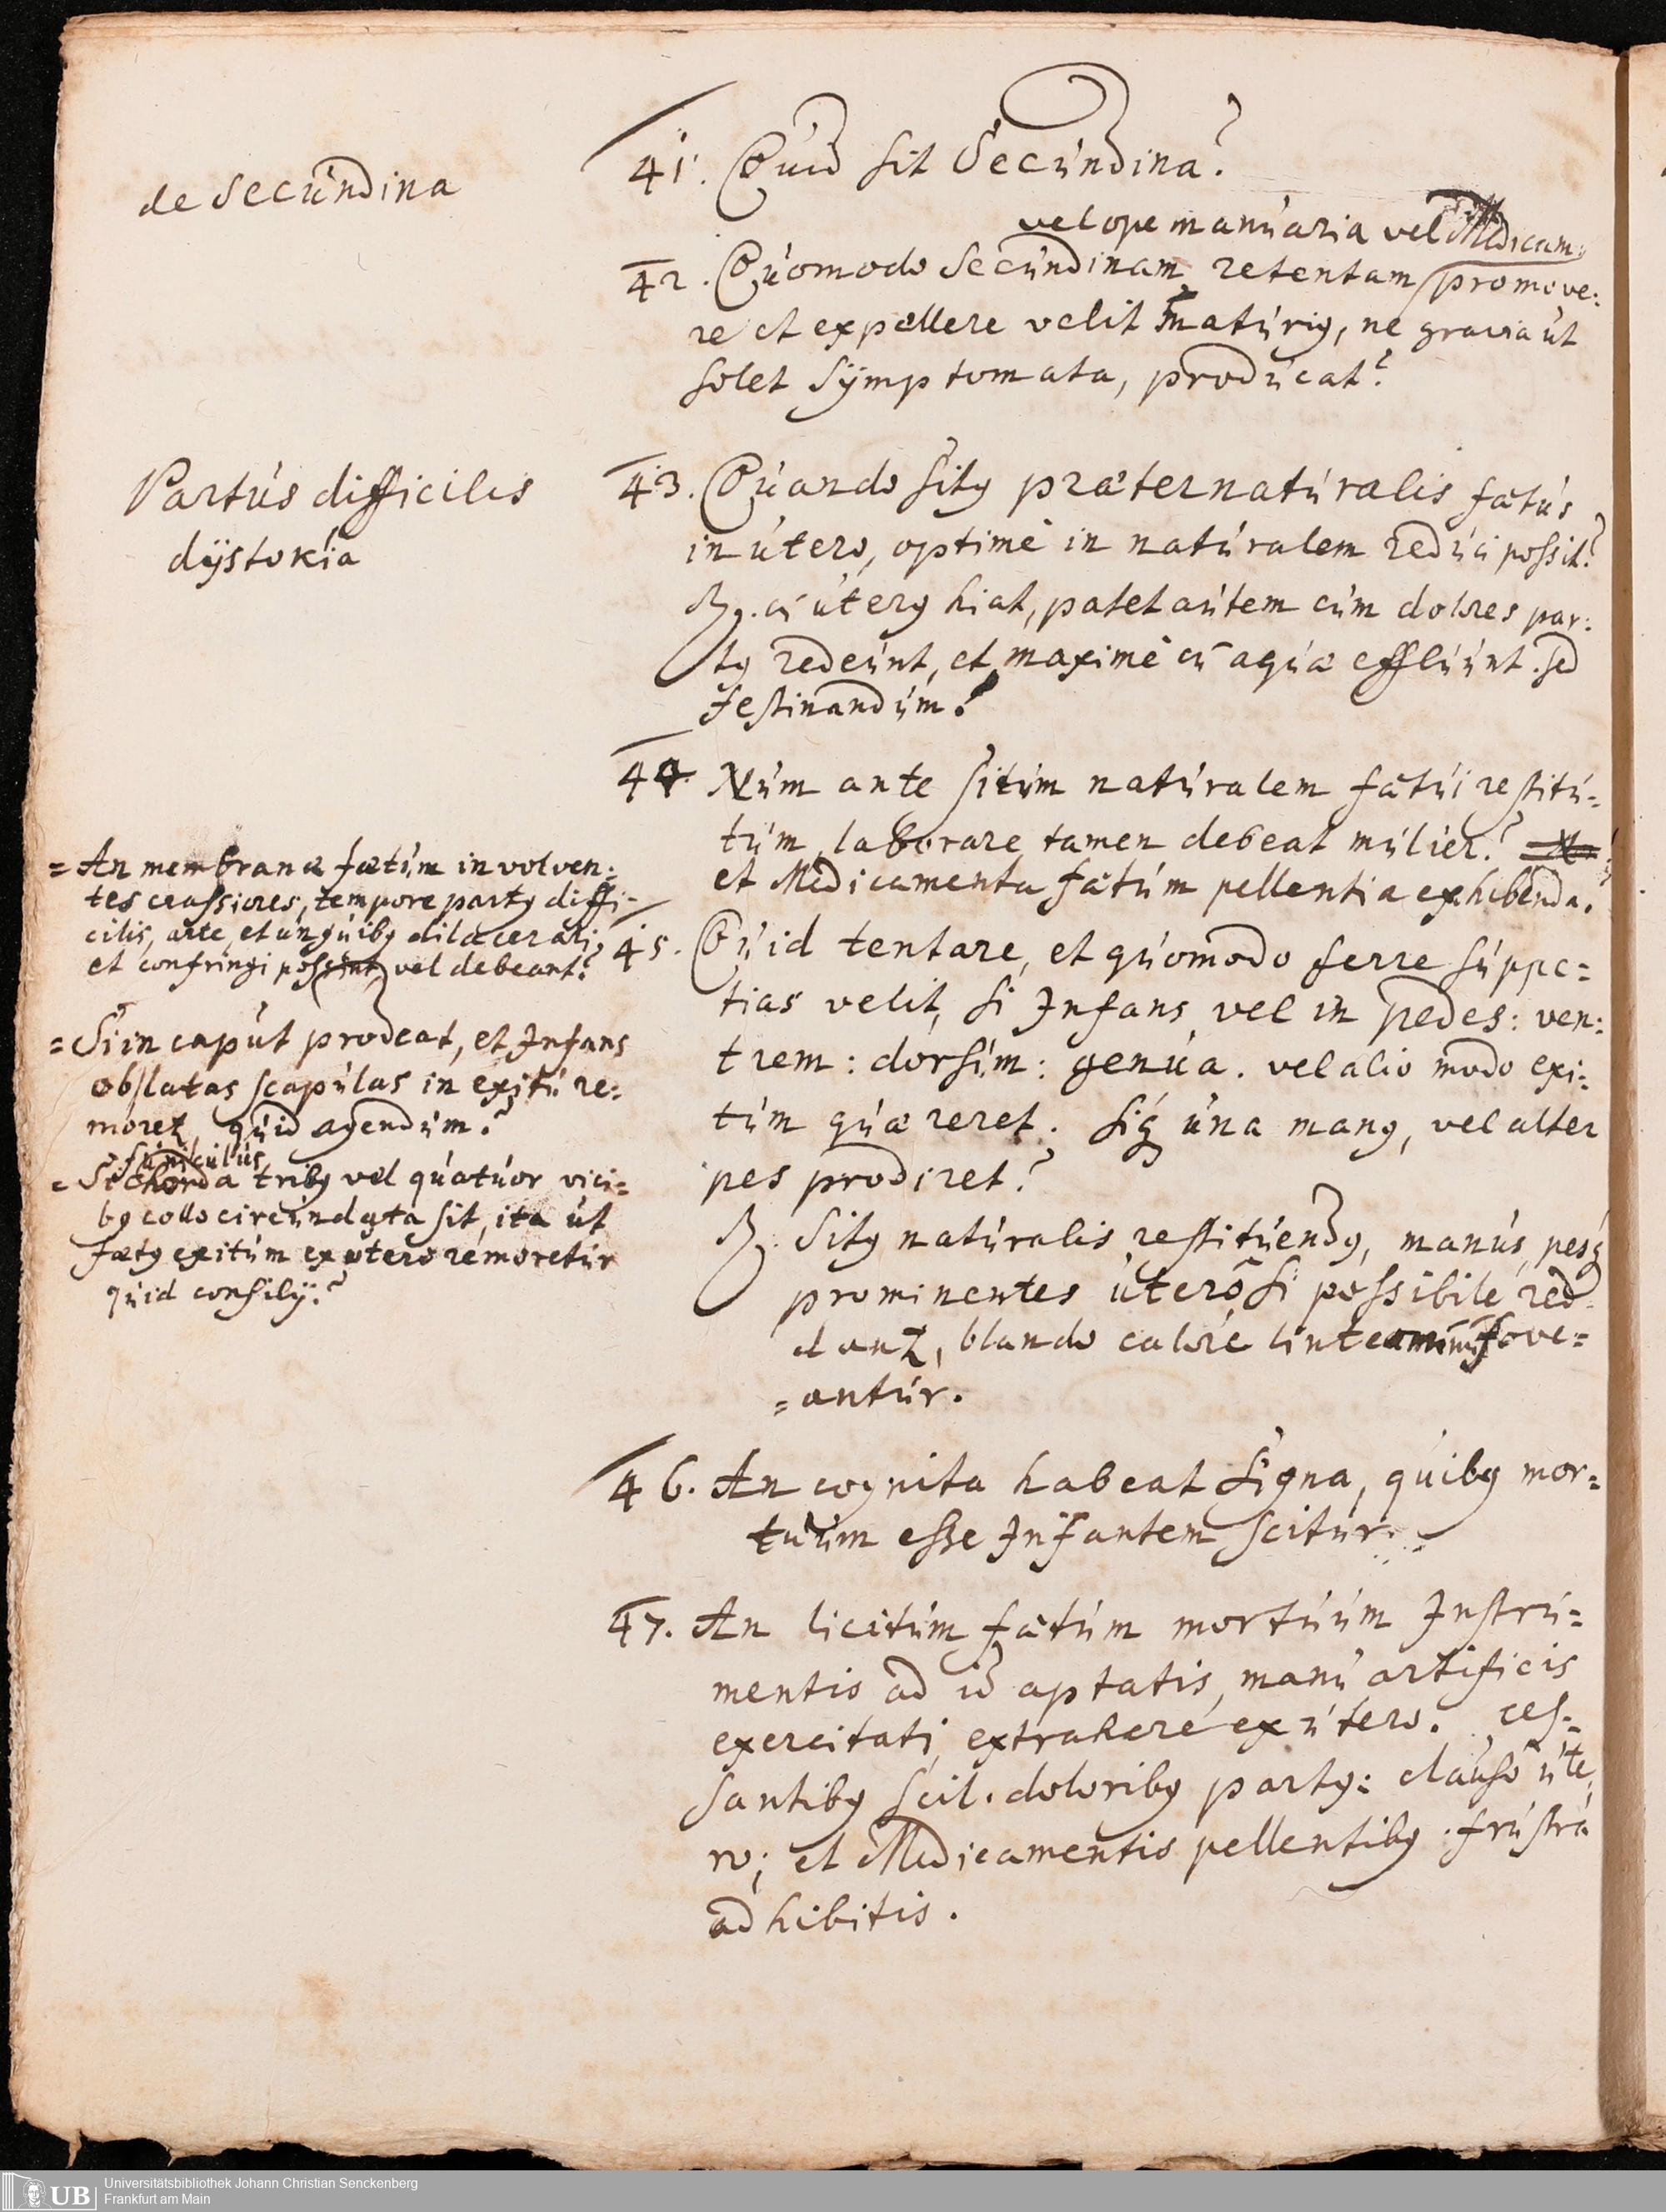 de Secundina
41. Quid sit Secundina?
vel ope manuaria vel Medicam:
42. Quomodo Secundinam retentam promove:
re et expellere velit maturiꝰ, ne gravia ut
solet Sÿmptomata, producat?
Partus difficilis
dÿstokia
43. Quando Sitꝰ præternaturalis fætus
in utero, optimè in naturalem reduci possit?
R. cū uterꝰ hiat, patet autem cum dolores par:
tꝰ redeunt, et maximè cū aquæ effluunt. sed
festinandum!
44. Num ante situm naturalem fætui restitu=
tum, laborare tamen debeat mulier?
et Medicamenta fætum pellentia exhibenda.
= An membranæ fætum involven:
tes crassiores, tempore partꝰ diffi-
cilis, arte, et unguibꝰ dilacerari,
et confringi possint, vel debeant?
= Si in caput prodeat, et Infans
ob latas scapulas in exitu re:
moretꝛ, quid agendum?
funiculus
= Si Chorda tribꝰ vel quatuor vici=
bꝰ collo circumdata sit, ita ut
fætꝰ exitum ex utero remoretur
quid consilÿ?
45. Quid tentare, et quomodo ferre suppe=
tias velit, si Infans vel in pedes: ven:
trem: dorsum: genua. vel alio modo exi:
tum quæreret. siꝗ una manꝰ, vel alter
pes prodiret?
R. Sitꝰ naturalis restituendꝰ, manus, pesꝗ
prominentes utero si possibile red
dantꝛ, blando calore linteaminū fove=
=antur.
46. An cognita habeat Signa, quibꝰ mor=
tuum esse Infantem scitur.
47. An licitum fætum mortuum Instru=
mentis ad id aptatis, manu artificis
exercitati, extrahere ex utero. ces:
santibꝰ scil. doloribꝰ partꝰ: clauso ute
ro; et Medicamentis pellentibꝰ frustra
adhibitis.
Universitätsbibliothek Johann Christian Senckenberg
Frankfurt am Main
UB